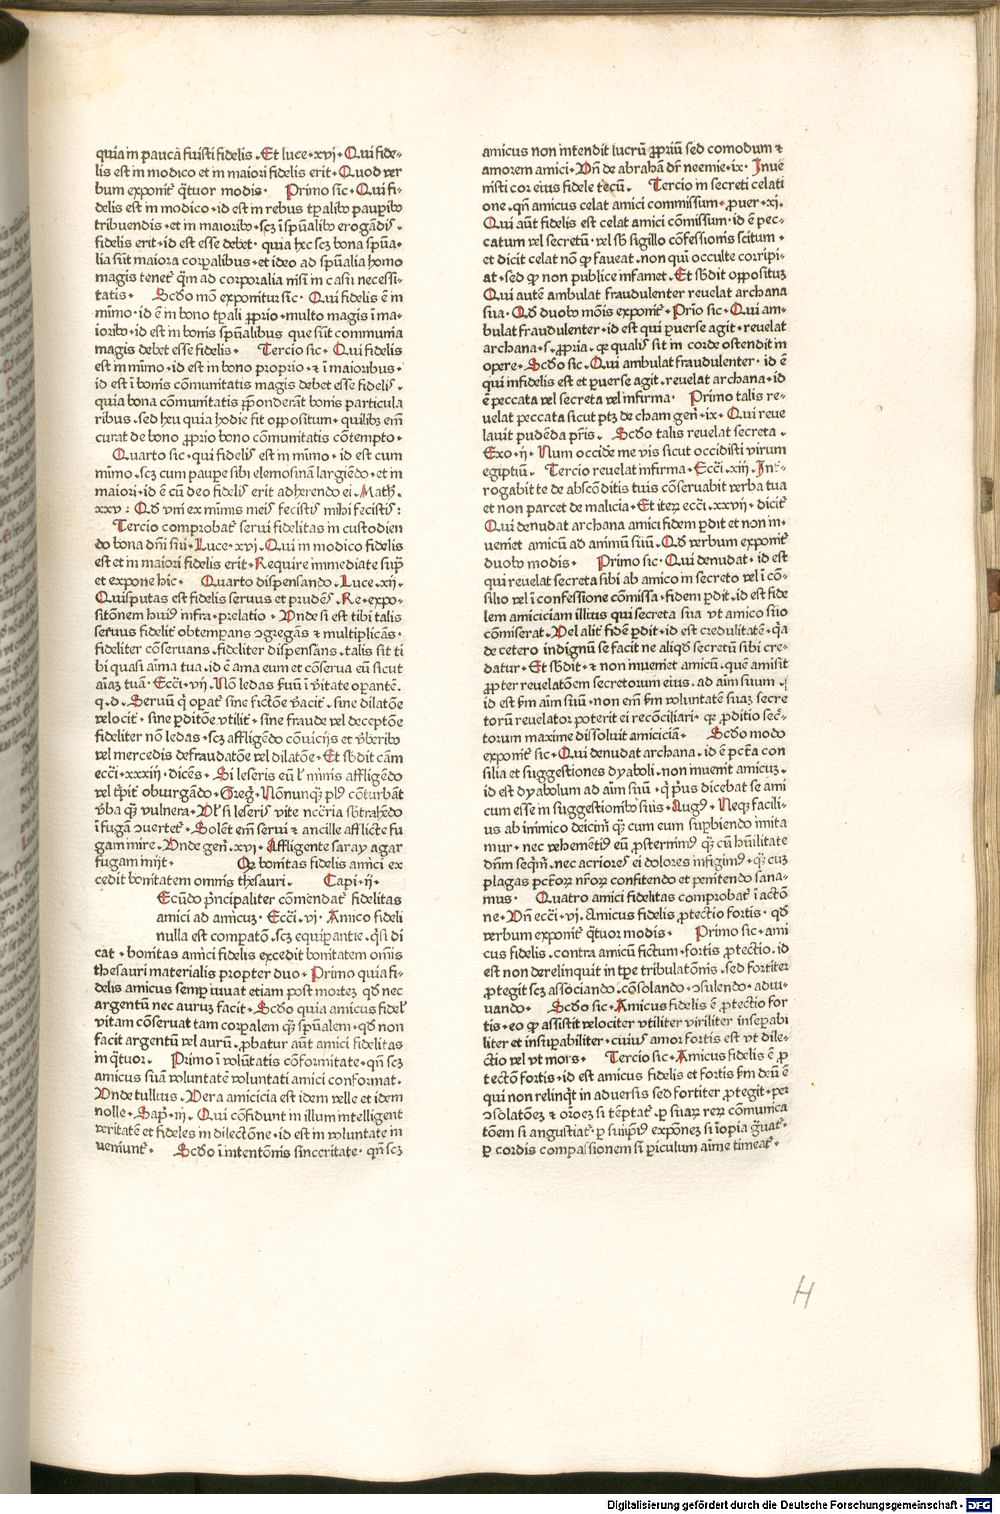 quia in pauca fuisti fidelis. Et luce. xvj. Qui fide-
lis est in modico et in maiori fidelis erit. Quod ver
bum exponit̉ q̈tuor modis. Primo sic. Qui fi-
delis est in modico. id est in rebus tp̄alib9 paup̱ib9
tribuendis. et in maiorib9. scꝫ ī sp̄ualib9 erogādis.
fidelis erit. id est esse debet. quia hec scꝫ bona sp̄ua-
lia sūt maiora corꝑalibus. et ideo ad sp̄ualia homo
magis tenet̉ q̄m ad corporalia nisi in casu necessi-
tatis. Scd̄o mō exponitur sic. Qui fidelis ē in
minimo. id ē in bono tp̄ali ꝓprio. multo magis ī ma-
iorib9. id est in bonis sp̄ualibus que sūt communia
magis debet esse fidelis. Tercio sic. Qui fidelis
est in mīmo. id est in bono proprio. ⁊ ī maioribus.
id est ī bonis cōmunitatis magis debet esse fidelis.
quia bona cōmunitatis p̄ponderant bonis particula
ribus. sed heu quia hodie fit oppositum. quilibꝫ em̄
curat de bono ꝓprio bono cōmunitatis cōtempto.
Quarto sic. qui fidelis est in mīmo. id est cum
mīmo. scꝫ cum pauꝑe sibi elemosinā largiēdo. et in
maiori. id ē cū deo fidelis erit adherendo ei. Math.
xxv: Qd̄ vni ex mīmis meis fecistis mihi fecistis:
Tercio comprobat̉ serui fidelitas in custodien
do bona dn̄i sui. Luce. xvj. Qui in modico fidelis
est et in maiori fidelis erit. Require immediate sup̄
et expone hic. Quarto dispensando. Luce. xij.
Quisputas est fidelis seruus et prudēs. Re. expo-
sitōnem hui9 infra. prelatio. Vnde si est tibi talis
seruus fidelit̉ obtemꝑans ↄgregās ⁊ multiplicās.
fideliter cōseruans. fideliter dispensās. talis sit ti
bi quasi aīma tua. id ē ama eum et cōserua eū sicut
aīaꝫ tuā. Ecci. vij. Nō ledas ẜuū ī v̉itate oꝑantē.
q. d. Seruū q̇ oꝑat̉ sine fictōe v̉acit̉. sine dilatōe
velocit̉. sine ꝑditōe vtilit̉. sine fraude vel deceptōe
fideliter nō ledas. scꝫ affligēdo cōuicijs et v̉berib9
vel mercedis defraudatōe vel dilatōe. Et sb̄dit cām
ecci. xxxiij. dicēs. Si leseris eū l̉ nimis affligēdo
vel tp̄it̉ obiurgādo. Greg̉. Nōnunq̄ꝫ pl9 cōturbāt
v̉ba q̄ꝫ vulnera. Vl̉ si leseris vite nēcc̄ria sb̄trahēdo
ī fugā ↄuertet̉. Solēt em̄ serui ⁊ ancille afflicte fu
gam inire. Vnde gen̄. xvi. Affligente saray agar
fugam inijt. Qꝫ bonitas fidelis amici ex
cedit bonitatem omnis thesauri. Capi. ij.
Ecūdo prīncipaliter cōmendat̉ fidelitas
amici ad amicuꝫ. Ecci. vj. Amico fideli
nulla est comꝑatō. scꝫ equiꝑantie. q̈si di
cat. bonitas amici fidelis excedit bonitatem om̄is
thesauri materialis propter duo. Primo quia fi-
delis amicus semꝑ iuuat etiam post morteꝫ qd̄ nec
argentū nec auruꝫ facit. Scd̄o quia amicus fidel̉
vitam cōseruat tam corꝑalem q̄ꝫ sp̄ualem. qd̄ non
facit argentū vel aurū. ꝓbatur aūt amici fidelitas
in q̈tuor. Primo ī volūtatis cōformitate. qn̄ scꝫ
amicus suā voluntatē voluntati amici conformat.
Vnde tullius. Vera amicicia est idem velle et idem
nolle. Sap̄. iij. Qui cōfidunt in illum intelligent
veritatē et fideles in dilectōne. id est in voluntate in
ueniunt̉. Scd̄o ī intentōnis sinceritate. qn̄ scꝫ
amicus non intendit lucrū ꝓpriū sed comodum ⁊
amorem amici. Vn̄ de abrahā dr̄ neemie. ix. Inue
nisti cor eius fidele tecū. Tercio in secreti celati
one. qn̄ amicus celat amici commissum. ꝓuer. xj.
Qui aūt fidelis est celat amici cōmissum. id ē pec-
catum vel secretū. vel sb̄ sigillo cōfessionis scitum.
et dicit celat nō ꝙ faueat. non qui occulte corripi-
at. sed ꝙ non publice infamet. Et sb̄dit opposituꝫ
Qui autē ambulat fraudulenter reuelat archana
sua. Qd̄ duob9 mōis exponit̉. Prīo sic. Qui am-
bulat fraudulenter. id est qui ꝑuerse agit. reuelat
archana. s. ꝓpria. qꝫ qualis sit in corde ostendit in
opere. Scd̄o sic. Qui ambulat fraudulenter. id ē
qui infidelis est et ꝑuerse agit. reuelat archana. id
ē peccata vel secreta vel infirma. Primo talis re-
uelat peccata sicut ptꝫ de cham gen̄. ix. Qui reue
lauit pudēda pr̄is. Scd̄o talis reuelat secreta.
Exo. ij. Num occide̓ me vis sicut occidisti virum
egiptiū. Tercio reuelat infirma. Ecci. xiij. Int̉-
rogabit te de abscōditis tuis cōseruabit verba tua
et non parcet de malicia. Et iteꝝ ecci. xxvij. dicit̉
Qui denudat archana amici fidem ꝑdit et non in-
ueniet amicū ad animū suū. Qd̄ verbum exponit̉
duob9 modis. Primo sic. Qui denudat. id est
qui reuelat secreta sibi ab amico in secreto vel ī cō-
silio vel ī confessione cōmissa. fidem ꝑdit. id est fide
lem amiciciam illius qui secreta sua vt amico suo
cōmiserat. Vel alit̉ fidē ꝑdit. id est credulitatē. q̈a
de cetero indignū se facit ne aliqd̄ secretū sibi cre-
datur. Et sb̄dit. ⁊ non inueniet amicū. quē amisit
ꝓpter reuelatōem secretorum eius. ad aīm suum.
id est ẜm aīm suū. non em̄ ẜm voluntatē suaꝫ secre
torū reuelator poterit ei recōciliari. qꝫ ꝓditio secr̄-
torum maxime dissoluit amiciciā. Scd̄o modo
exponit̉ sic. Qui denudat archana. id ē pctā con
silia et suggestiones dyaboli. non inuenit amicuꝫ.
id est dyabolum ad aīm suū. q̇ pri9 dicebat se ami
cum esse in suggestionib9 suis. Aug9. Neqꝫ facili-
us ab inimico deicim̉ q̄ꝫ cum eum suꝑbiendo imita
mur. nec vehementi9 eū ꝓsternim9 q̄ꝫ cū humilitate
dn̄m seqm̄. nec acriores ei dolores infigim9. q̄ꝫ cuꝫ
plagas pctōꝝ nr̄oꝝ confitendo et penitendo sana-
mus. Quatro amici fidelitas comprobat̉ ī actō
ne. Vn̄ ecci. vj. Amicus fidelis ꝓtectio fortis. qd̄
verbum exponit̉ q̈tuor modis. Primo sic. ami
cus fidelis. contra amicū fictum. fortis ꝓtectio. id
est non derelinquit in tp̄e tribulatōnis. sed fortiter
ꝓtegit scꝫ associando. cōsolando. ↄsulendo. adiu-
uando. Scd̄o sic. Amicus fidelis ē ꝓtectio for
tis. eo ꝙ assistit velociter vtiliter viriliter inseꝑabi
liter et insuꝑabiliter. cuius amor fortis est vt dile-
ctio vel vt mors. Tercio sic. Amicus fidelis ē ꝓ
tectō fortis. id est amicus fidelis et fortis ẜm deū ē
qui non relinq̇t in aduersis sed fortiter ꝓtegit. per
ↄsolatōeꝫ ⁊ oroeꝫ si tēptat̉. ꝑ suaꝝ reꝝ cōmunica
tōem si angustiat̉. ꝑ suiip̄i9 expōneꝫ si īopia g̈uat̉.
ꝑ cordis compassionem si ꝑiculum aīme timeat̉.
H
Digitalisierung gefördert durch die Deutsche Forschungsgemeinschaft - DFG